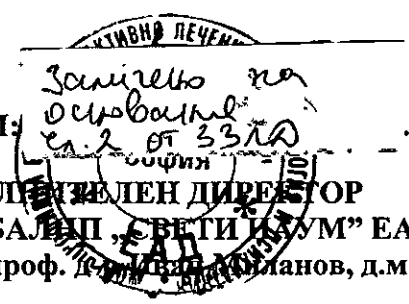 АКТИВНО ЛЕЧЕН
Заличено на
основание
чл.2 от ЗЗЛД
СОФИЯ
ДИРЕКТОР
„СВЕТИ НАУМ” ЕА
проф. д-р Иван Миланов, д.м
ЕАД